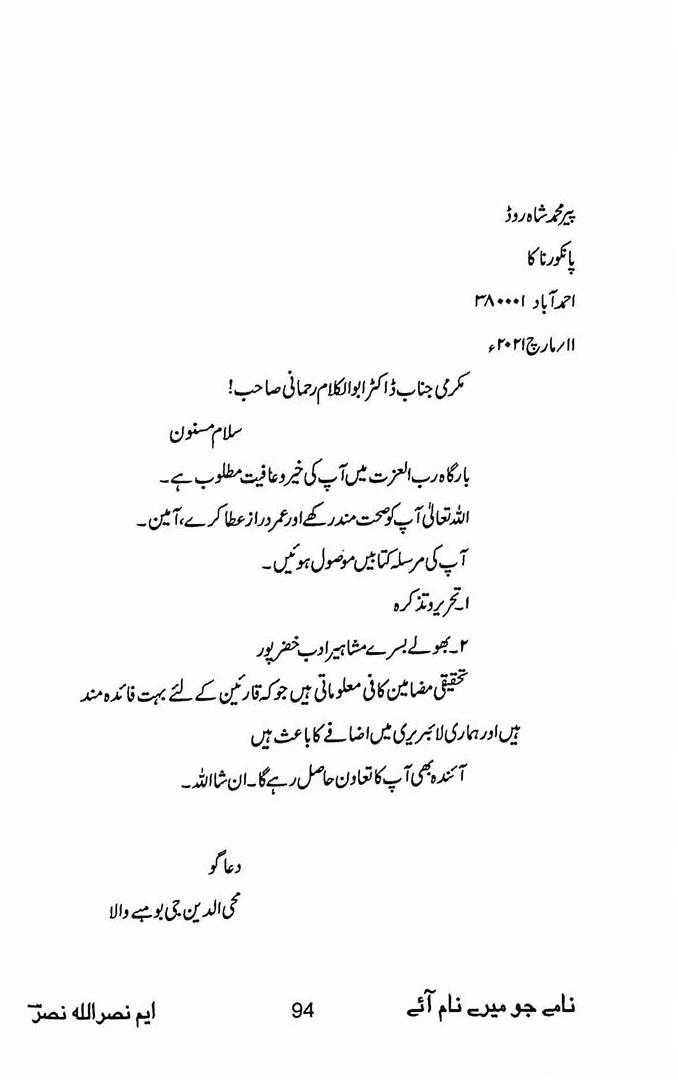 پیر محمد شاہ روڈ
پانکور ناکا
احمد آباد ۳۸۰۰۰۱
۱۱/مارچ ۲۰۲۱ء
مکرمی جناب ڈاکٹر ابوالکلام رحمانی صاحب!
سلام مسنون
بارگاہ رب العزت میں آپ کی خیر و عافیت مطلوب ہے۔
اللہ تعالیٰ آپ کو صحت مند رکھے اور عمر دراز عطا کرے، آمین۔
آپ کی مرسلہ کتابیں موصول ہوئیں۔
۱۔تحریر و تذکرہ
۲۔بھولے بسرے مشاہیر ادب خضر پور
تحقیقی مضامین کافی معلوماتی ہیں جو کہ قارئین کے لئے بہت فائدہ مند
ہیں اور ہماری لائبریری میں اضافے کا باعث ہیں
آئندہ بھی آپ کا تعاون حاصل رہے گا۔ ان شا اللہ۔
دعا گو
محی الدین جی بومبے والا
نامے جو میرے نام آئے
94
ایم نصر اللہ نصرؔ